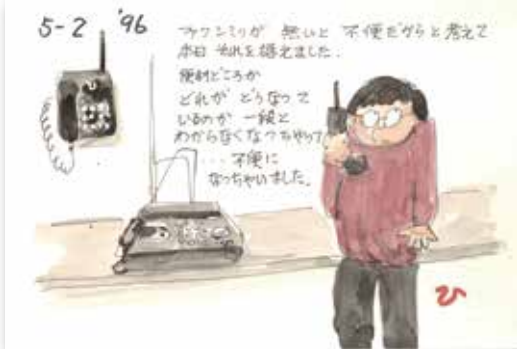 5-2 '96
ファクシミリが 無いと 不便だからと考えて
本日 それを揃えました.
便利どころか
どれが どうなって
いるのか 一段と
わからなくなっちゃって
...不便に
なっちゃいました。
ひ